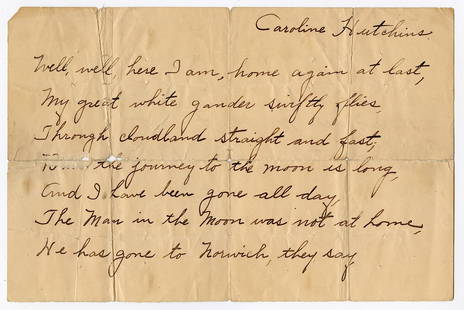 Caroline Hutchins.
Well, well, here I am, home again at last,
My great white gander swiftly flies
Through cloudland straight and fast;
the journey to the moon is long,
And I have been gone all day,
The Man in the Moon was not at home,
He has gone to Norwich, they say,